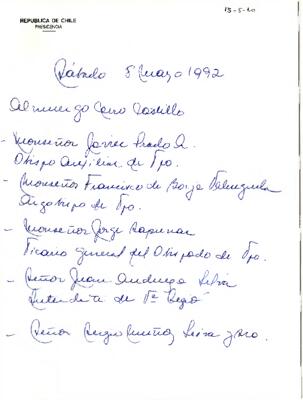 13-5-20
REPUBLICA DE CHILE
PRESIDENCIA
Sábado 8 Mayo 1992
Almuerzo Cerro Castillo
- Monseñor Javier Prado A.
Obispo Auxiliar de Vpo.
- Monseñor Francisco de Borja Valenzuela
Arzobispo de Vpo.
- Monseñor Jorge
Vicario General del Obispado de Vpo.
- Señor Juan Andueza Silva
Intendente de Vª Región
- Señor Sergio Muñoz